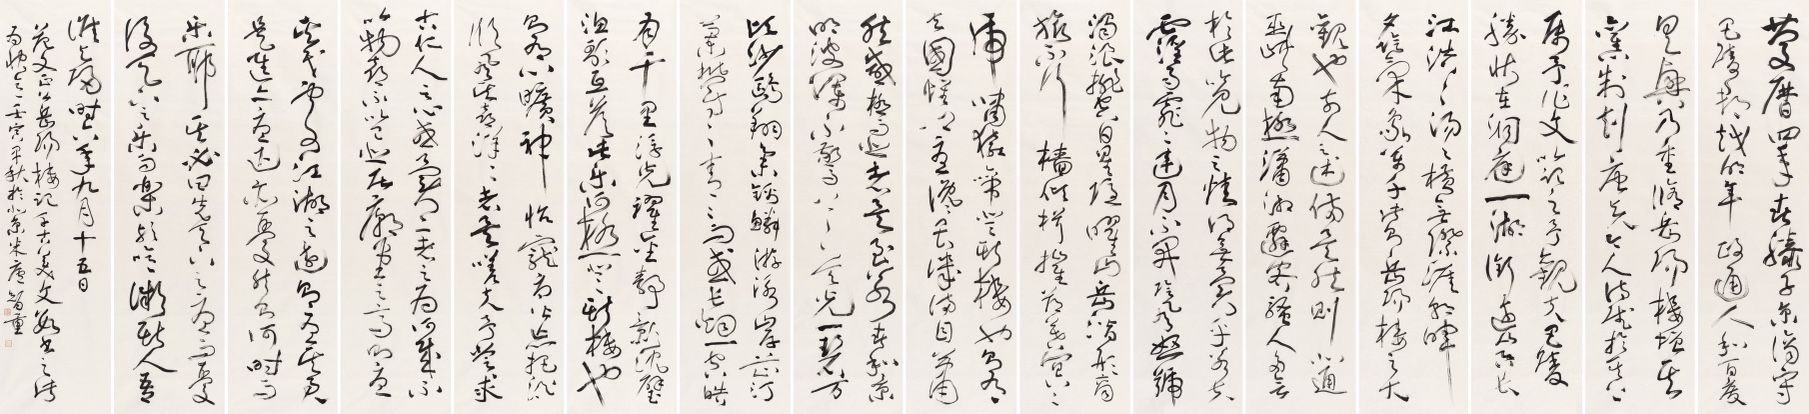 慶曆四年春滕子京謫守
巴陵郡越明年政通人和百廢
具興乃重修岳陽樓增其
舊制刻唐賢今人詩賦於其上
屬予作文以記之予觀夫巴陵
勝狀在洞庭一湖銜遠山吞長
江浩浩湯湯橫無際涯朝暉
夕陰氣象萬千此則岳陽樓之大
觀也前人之述備矣然則北通
巫峽南極瀟湘遷客騷人多會
於此覽物之情得無異乎若夫
霪雨霏霏連月不開陰風怒號
濁浪排空日星隱曜山岳潛形商
旅不行檣傾楫摧薄暮冥冥
虎嘯猿啼登斯樓也則有
去國懷鄉憂讒畏譏滿目蕭
然感極而悲者矣至若春和景
明波瀾不驚上下天光一碧萬
頃沙鷗翔集錦鱗游泳岸芷汀
蘭郁郁青青而或長煙一空皓
月千里浮光躍金靜影沉璧
漁歌互答此樂何極登斯樓也
則有心曠神怡寵辱皆忘把酒
臨風其喜洋洋者矣嗟夫予嘗求
古仁人之心或異二者之為何哉不
以物喜不以己悲居廟堂之高則憂
其民處江湖之遠則憂其君
是進亦憂退亦憂然則何時而
樂耶其必曰先天下之憂而憂
後天下之樂而樂歟噫微斯人吾
誰與歸時六年九月十五日
范文正公岳陽樓記千古美文敬書之
壬寅年秋於北京米庵